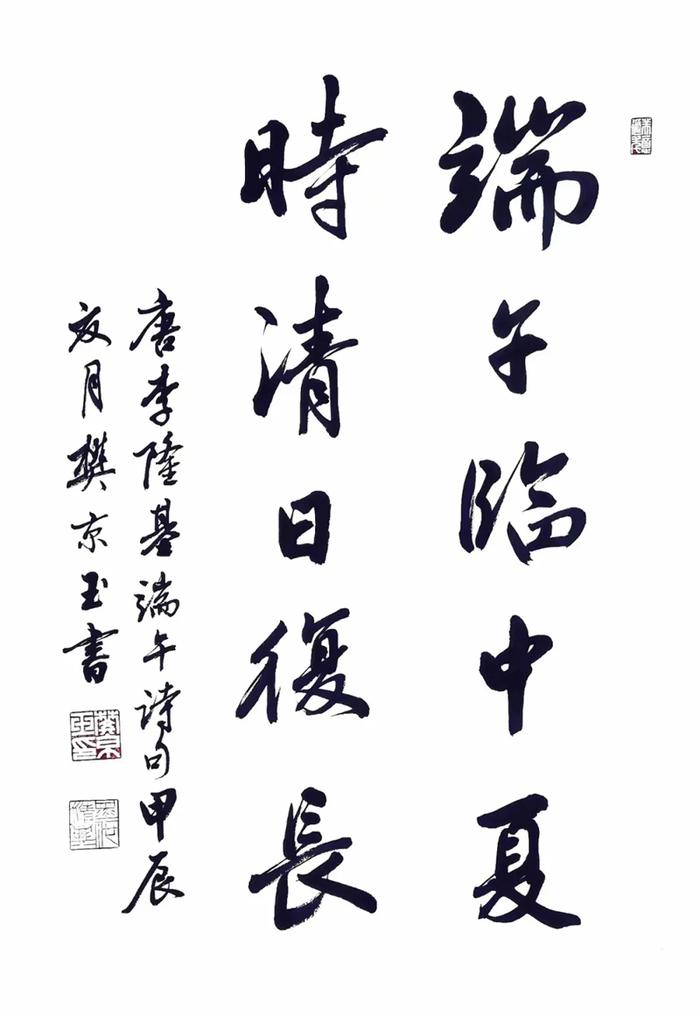 端午臨中夏
時清日復長
唐李隆基端午詩句甲辰
夏月樊京玉書